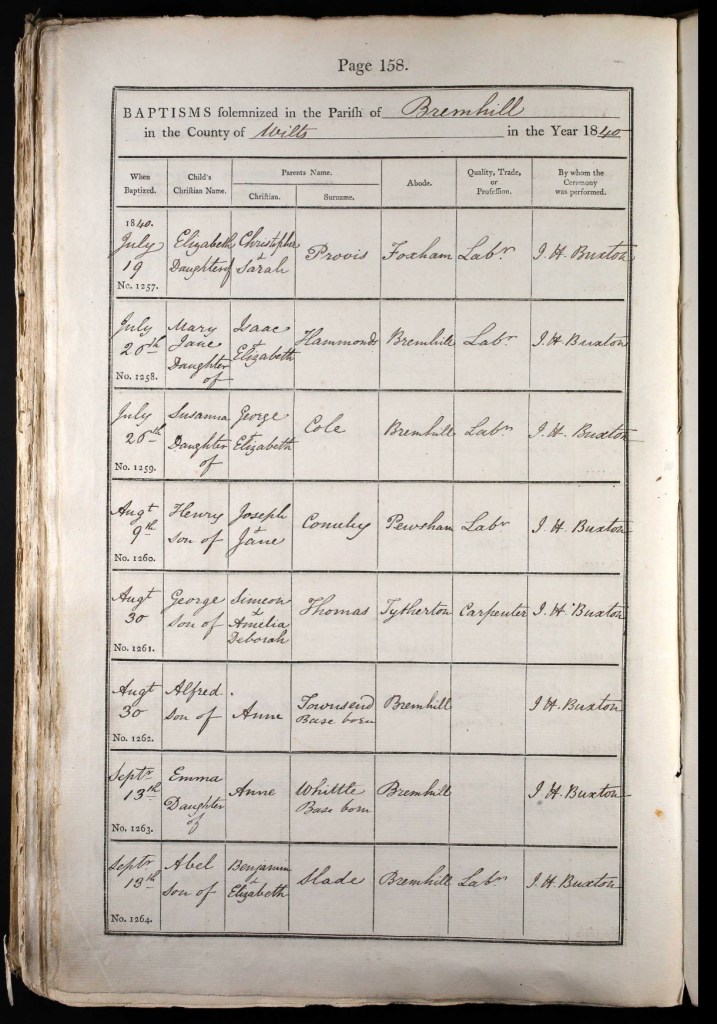 Page 158.
BAPTISMS solemnized in the Parish of Bremhill
in the County of Wilts in the Year 1840
When Baptized. Child's Christian Name. Parents Name. Christian. Surname. Abode. Quality, Trade, or Profession. By whom the Ceremony was performed.
1840.
July Elizabeth Christopher Provis Foxham Labr J. H. Buxton
19 Daughter of & Sarah
No. 1257.
July Mary Isaac Hammonds Bremhill Labr J. H. Buxton
26th Jane & Elizabeth
Daughter
No. 1258. of
July Susanna George Cole Bremhill Labr J. H. Buxton
26th Daughter & Elizabeth
No. 1259. of
Augt Henry Joseph Pewsham Labr J. H. Buxton
9th Son of & Jane
No. 1260.
Augt George Simeon Thomas Tytherton Carpenter J. H. Buxton
30 Son of & Amelia
Deborah
No. 1261.
Augt Alfred Townsend Bremhill J. H. Buxton
30 Son of Anne Base born
No. 1262.
Septr Emma Anne Whittle Bremhill J. H. Buxton
13th Daughter Base born
of
No. 1263.
Septr Abel Benjamin Slade Bremhill Labr J. H. Buxton
13th Son of & Elizabeth
No. 1264.